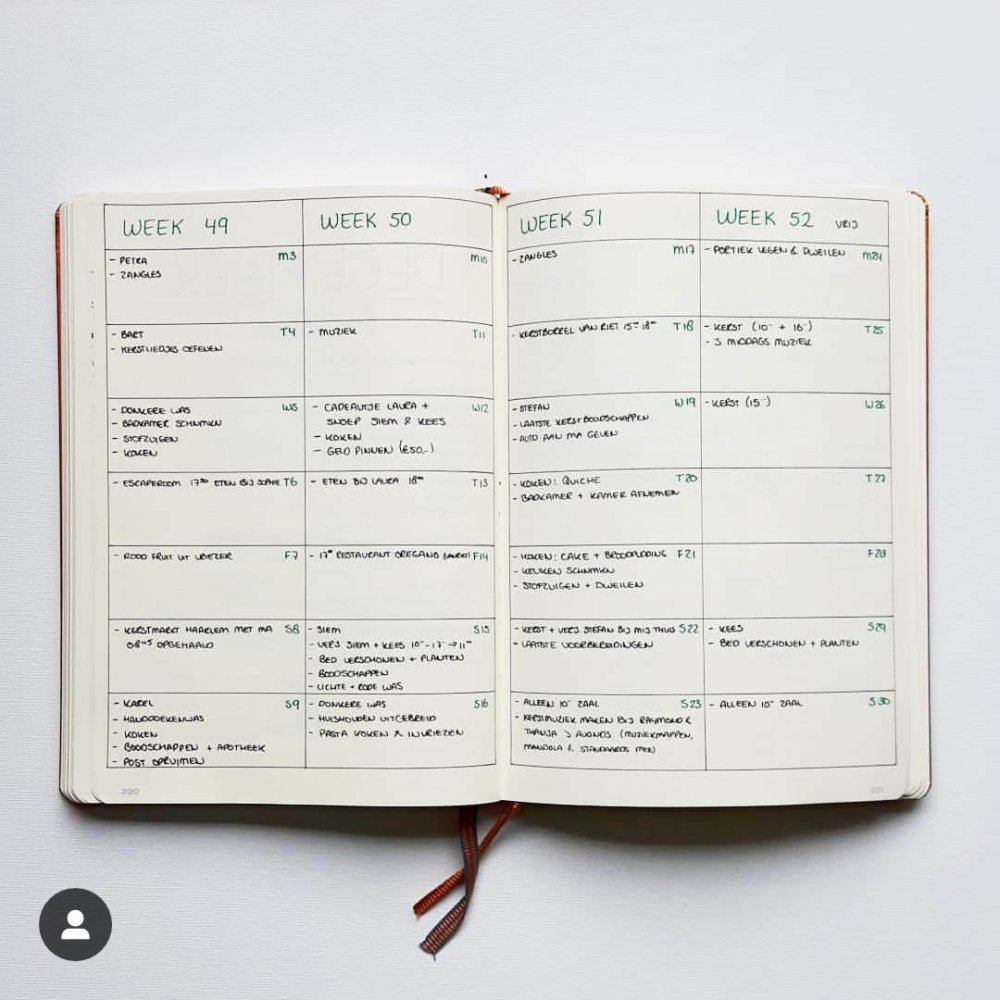 WEEK 49
- PETRA M3
- ZANGLES
- BART T4
- KERSTLIEDJES OEFENEN
- DONKERE WAS W5
- BADKAMER SCHNMKN
- STOFZUIGEN
- KOKEN
- ESCAPEROOM 17³⁰ ETEN BIJ T6
- ROOD FRUIT UIT VRIEZER F7
- KERSTMARKT HAARLEM MET MA S8
08⁴⁵ OPGEHAALD
- KAREL S9
- HANDDOEKENWAS
- KOKEN
- BOODSCHAPPEN + APOTHEEK
- POST OPRUIMEN
200
WEEK 50
M10
- MUZIEK T11
- CADEAUTJE LAURA + W12
SNOEP SIEM & KEES
- KOKEN
- GELD PINNEN (€50,-)
- ETEN BIJ LAURA 18⁰⁰ T13
- 17³⁰ RESTAURANT OREGANO F14
- SIEM S15
- VERJ SIEM + KEES 10⁻-17⁻→11⁰⁰
- BED VERSCHONEN + PLANTEN
- BOODSCHAPPEN
- LICHTE + RODE WAS
- DONKERE WAS S16
- HUISHOUDEN UITGEBREID
- PASTA KOKEN & INVRIEZEN
WEEK 51
- ZANGLES M17
- KERSTBORREL VAN RIET 15⁰⁰ 18⁰⁰ T18
- STEFAN W19
- LAATSTE KERSTBOODSCHAPPEN
- AUTO AAN MA GEVEN
- KOKEN: QUICHE T20
- BADKAMER + KAMER AFNEMEN
- KOKEN: CAKE + BROODPUDDING F21
- KEUKEN SCHNMKN
- STOFZUIGEN + DWEILEN
- KERST + VERJ STEFAN BIJ MIJ THUIS S22
- LAATSTE VOORBEREIDINGEN
- ALLEEN 10⁻ ZAAL S23
- KERSTMUZIEK MAKEN BIJ RAYMOND &
THANJA 'S AVONDS (MUZIEKMAPPEN,
MANDOLA & STANDAARDS MEE)
WEEK 52 VRIJ
- PORTIEK VEGEN & DWEILEN M24
- KERST (10⁻ + 16⁻) T25
- 'S MIDDAGS MUZIEK
- KERST (15⁻) W26
T27
F28
- KEES S29
- BED VERSCHONEN + PLANTEN
- ALLEEN 10⁻ ZAAL S30
201